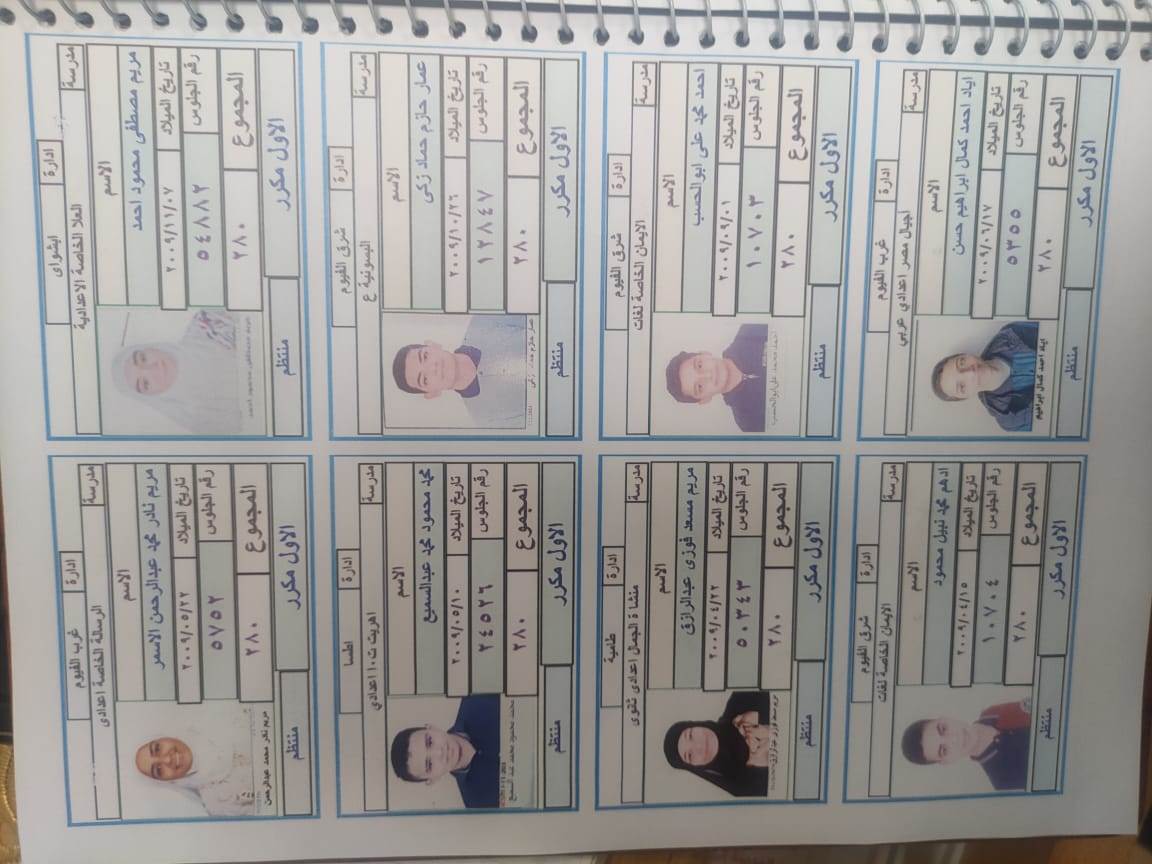 ادارة ابشواى
مدرسة العلا الخاصة الاعدادية
الاسم
مريم مصطفى محمود احمد
تاريخ الميلاد ٢٠٠٩/١١/٠٧
رقم الجلوس ٥٤٨٨٢
المجموع ٢٨٠
مريم مصطفى محمود احمد
الاول مكرر منتظم
ادارة غرب الفيوم
مدرسة الرسالة الخاصة اعدادى
الاسم
مريم نادر محمد عبدالرحمن الاسمر
تاريخ الميلاد ٢٠٠٩/٠٥/٢٢
رقم الجلوس ٥٧٥٢
المجموع ٢٨٠
مريم نادر محمد عبدالرحمن
الاول مكرر منتظم
ادارة شرق الفيوم
مدرسة البسيونية ع
الاسم
عمار حازم حماد زكى
تاريخ الميلاد ٢٠٠٩/١٠/٢٦
رقم الجلوس ١٢٨٤٧
المجموع ٢٨٠
الاول مكرر منتظم
ادارة اطسا
مدرسة اهريت ت١٠ اعدادي
الاسم
محمد محمود محمد عبدالسميع
تاريخ الميلاد ٢٠٠٩/٠٥/١٠
رقم الجلوس ٢٤٥٢٦
المجموع ٢٨٠
محمد محمود محمد عبد السميع
الاول مكرر منتظم
ادارة شرق الفيوم
مدرسة الايمان الخاصة لغات
الاسم
احمد محمد على ابوالحسب
تاريخ الميلاد ٢٠٠٩/٠٩/٠١
رقم الجلوس ١٠٧٠٣
المجموع ٢٨٠
احمد محمد على ابوالحسب
الاول مكرر منتظم
ادارة طامية
مدرسة منشاة الجمال اعدادى ثانوى
الاسم
مريم مسعد فوزى عبدالرازق
تاريخ الميلاد ٢٠٠٩/٠٤/٢٢
رقم الجلوس ٥٠٣٤٣
المجموع ٢٨٠
الاول مكرر منتظم
ادارة غرب الفيوم
مدرسة أجيال مصر اعدادي عربي
الاسم
اياد احمد كمال ابراهيم حسن
تاريخ الميلاد ٢٠٠٩/٠٦/١٧
رقم الجلوس ٥٣٥٥
المجموع ٢٨٠
اياد احمد كمال ابراهيم
الاول مكرر منتظم
ادارة شرق الفيوم
مدرسة الايمان الخاصة لغات
الاسم
ادهم محمد نبيل محمود
تاريخ الميلاد ٢٠٠٩/٠٤/١٥
رقم الجلوس ١٠٧٠٤
المجموع ٢٨٠
الاول مكرر منتظم